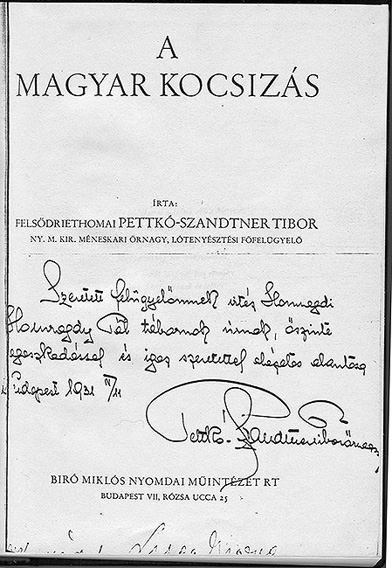 A
MAGYAR KOCSIZÁS
ÍRTA:
FELSŐDRIETHOMAI PETTKÓ-SZANDTNER TIBOR
NY. M. KIR. MÉNESKARI ŐRNAGY, LÓTENYÉSZTÉSI FŐFELÜGYELŐ
Szeretett felügyelőmnek vitéz
Pál úrnak, őszinte
és igaz szeretettel
Budapest 1931
Pettkó-Szandtner Tibor őrnagy
BIRÓ MIKLÓS NYOMDAI MŰINTÉZET RT
BUDAPEST VII, RÓZSA UCCA 25